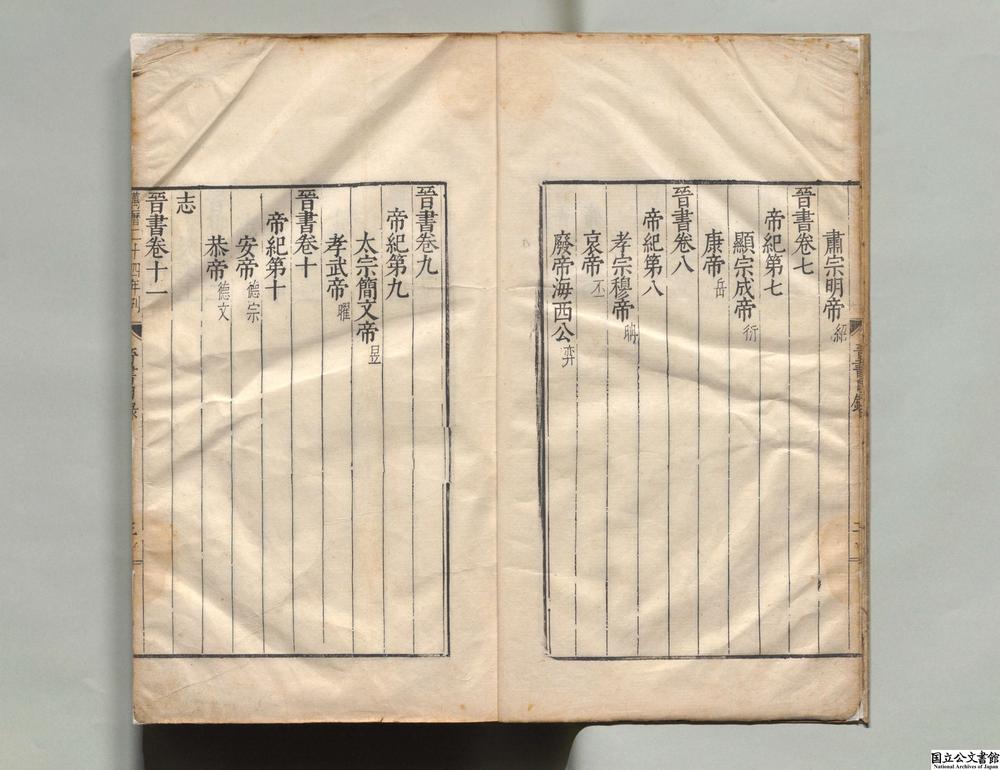 晉書目錄
肅宗明帝紹
晉書卷七
帝紀第七
顯宗成帝衍
康帝岳
晉書卷八
帝紀第八
孝宗穆帝聃
哀帝丕
廢帝海西公奕
晉書卷九
帝紀第九
太宗簡文帝昱
孝武帝曜
晉書卷十
帝紀第十
安帝德宗
恭帝德文
志
晉書卷十一
萬曆二十四年刊
国立公文書館
National Archives of Japan